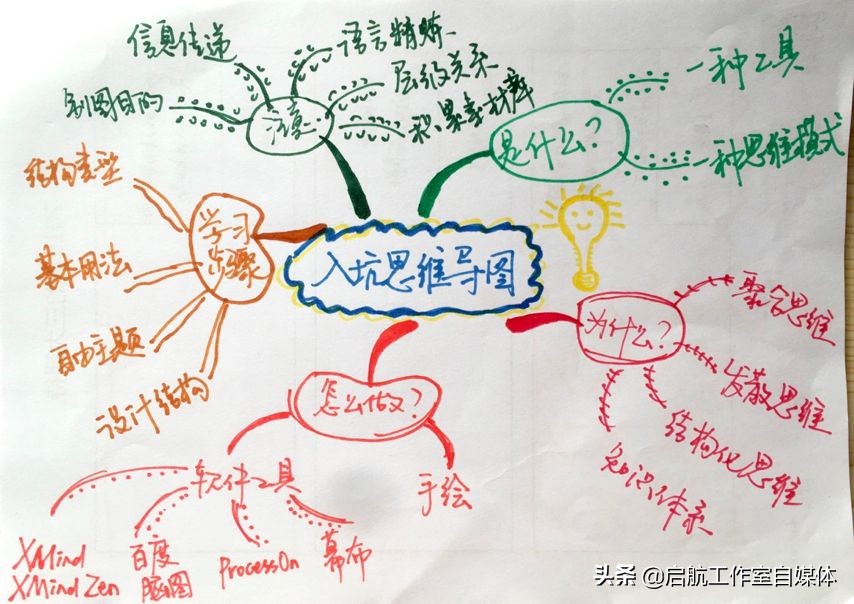 入坑思维导图
是什么?
一种工具
一种思维模式
为什么?
聚合思维
发散思维
结构化思维
知识体系
怎么做?
手绘
软件工具
XMind
XMind Zen
百度
脑图
ProcessOn
幕布
学习
步骤
结构类型
基本用法
自由主题
设计结构
注意
制图目的
信息传递
语言精炼
层级关系
积累素材库
头条 @启航工作室自媒体